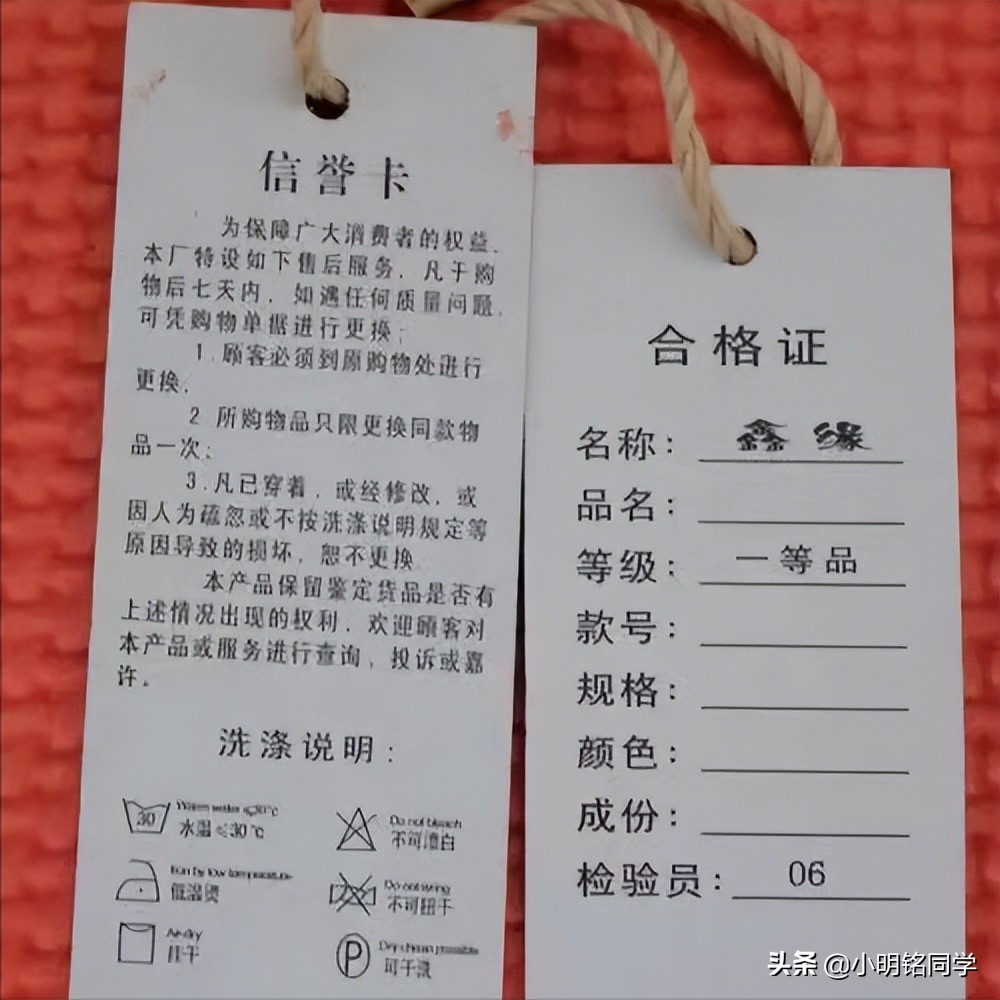 信誉卡
为保障广大消费者的权益，
本厂特设如下售后服务，凡于购
物后七天内，如遇任何质量问题，
可凭购物单据进行更换；
1.顾客必须到原购物处进行
更换，
2.所购物品只限更换同款物
品一次；
3.凡已穿着，或经修改，或
因人为疏忽或不按洗涤说明规定等
原因导致的损坏，恕不更换
本产品保留鉴定货品是否有
上述情况出现的权利，欢迎顾客对
本产品或服务进行查询，投诉或嘉
许。
洗涤说明：
30
水温≤30℃
Do not bleach
不可漂白
Iron by low temperature
低温烫
Do not wring
不可扭干
Air dry
挂干
P
可干洗
合格证
名称：鑫缘
品名：
等级：一等品
款号：
规格：
颜色：
成份：
检验员：06
头条 @小明铭同学